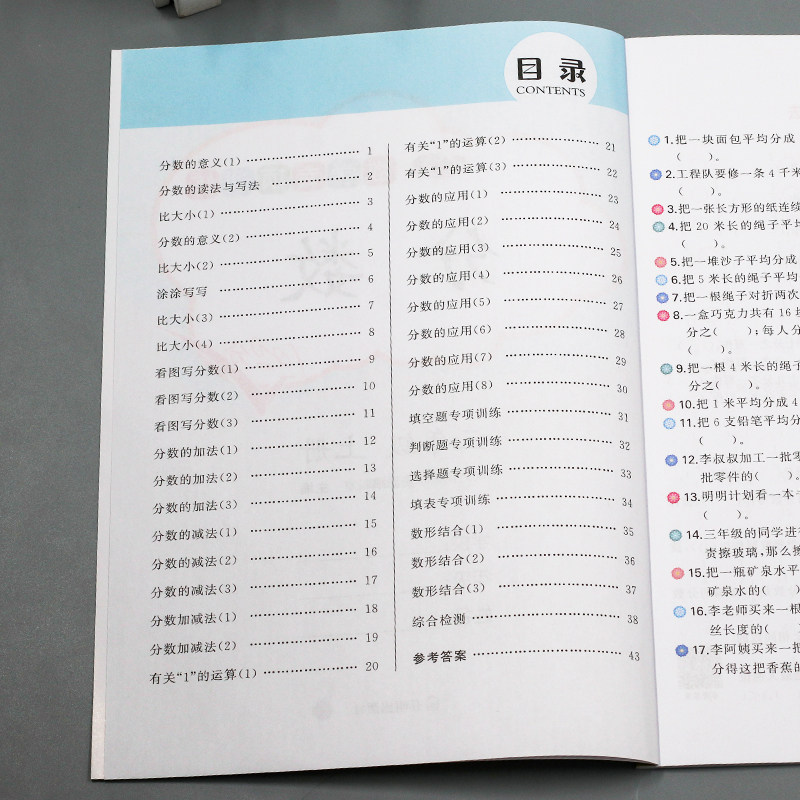 目录
CONTENTS
分数的意义(1) 1
分数的读法与写法 2
比大小(1) 3
分数的意义(2) 4
比大小(2) 5
涂涂写写 6
比大小(3) 7
比大小(4) 8
看图写分数(1) 9
看图写分数(2) 10
看图写分数(3) 11
分数的加法(1) 12
分数的加法(2) 13
分数的加法(3) 14
分数的减法(1) 15
分数的减法(2) 16
分数的减法(3) 17
分数加减法(1) 18
分数加减法(2) 19
有关“1”的运算(1) 20
有关“1”的运算(2) 21
有关“1”的运算(3) 22
分数的应用(1) 23
分数的应用(2) 24
分数的应用(3) 25
分数的应用(4) 26
分数的应用(5) 27
分数的应用(6) 28
分数的应用(7) 29
分数的应用(8) 30
填空题专项训练 31
判断题专项训练 32
选择题专项训练 33
填表专项训练 34
数形结合(1) 35
数形结合(2) 36
数形结合(3) 37
综合检测 38
参考答案 43
1.把一块面包平均分成
( )。
2.工程队要修一条4千米
( )。
3.把一张长方形的纸连续
4.把20米长的绳子平均
( )。
5.把一堆沙子平均分成
6.把5米长的绳子平均
7.把一根绳子对折两次
8.一盒巧克力共有16块
分之( );每人分
( )。
9.把一根4米长的绳子
分之( )。
10.把1米平均分成4
11.把6支铅笔平均分
( )。
12.李叔叔加工一批零
批零件的( )。
13.明明计划看一本
( )。
14.三年级的同学进行
责擦玻璃,那么擦
15.把一瓶矿泉水平
矿泉水的( )
16.李老师买来一根
丝长度的(
17.李阿姨买来一把
分得这把香蕉的